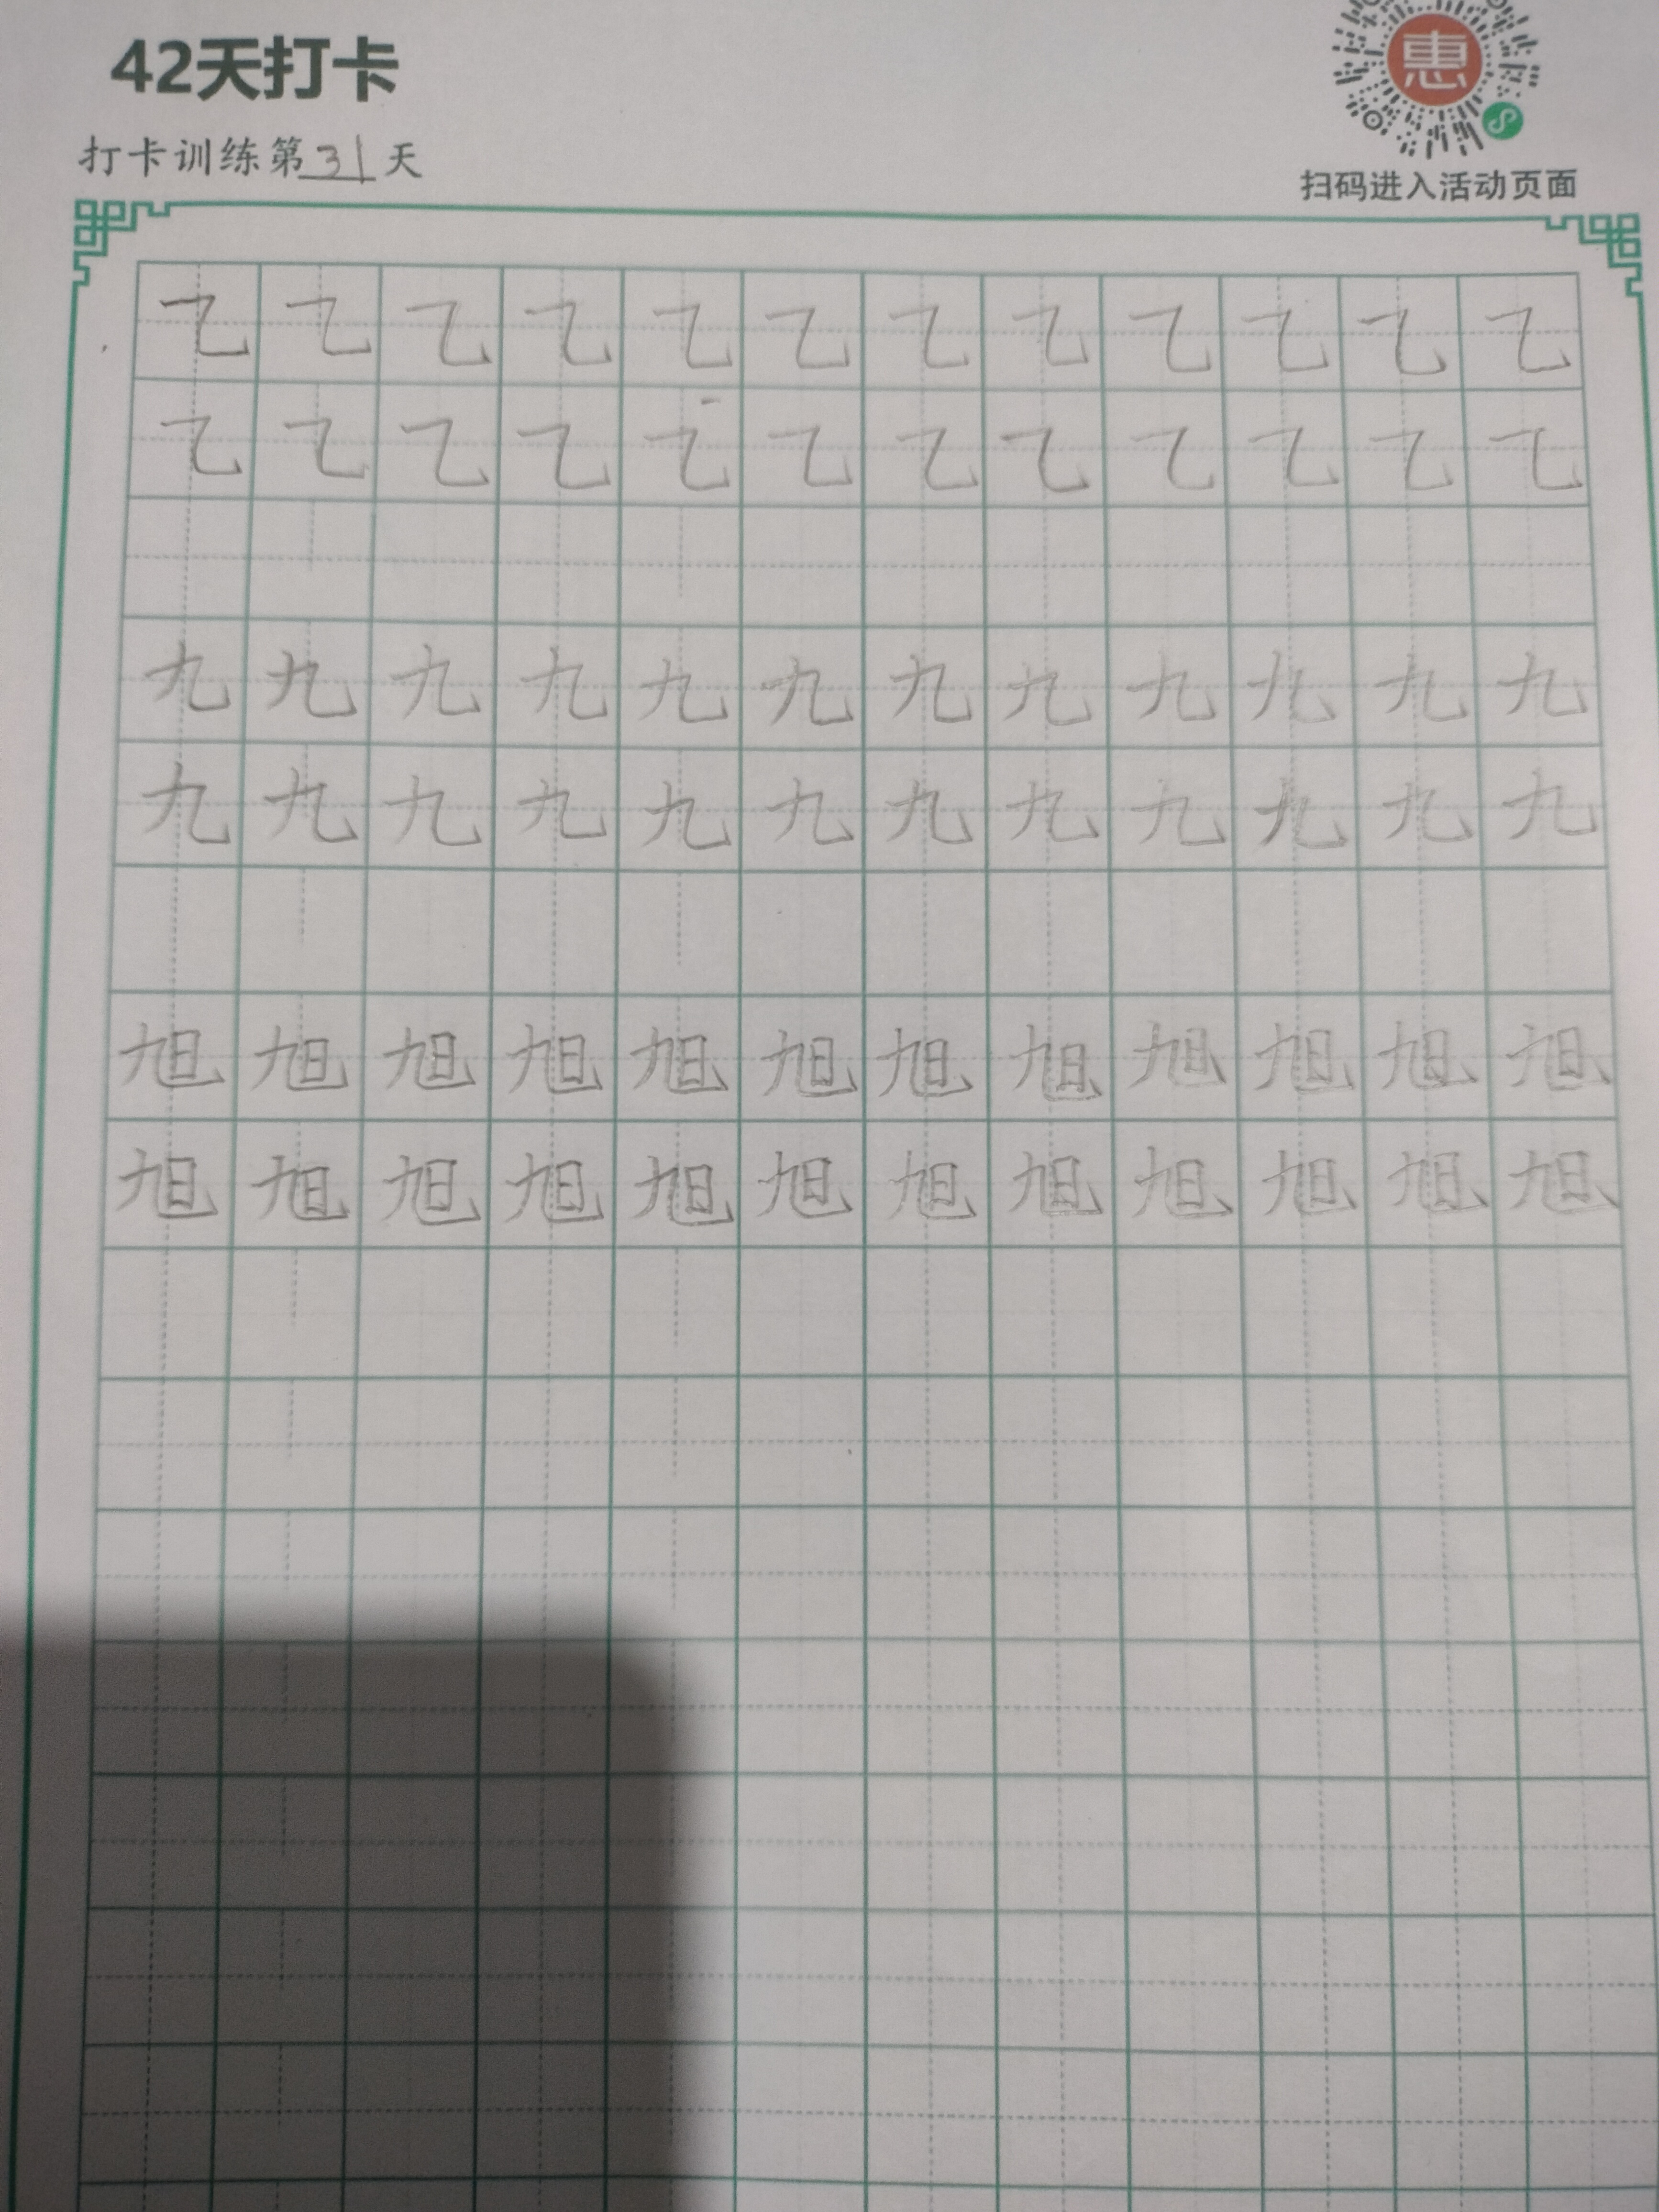 42天打卡
惠
打卡训练第31天
扫码进入活动页面
乙乙乙乙乙乙乙乙乙乙乙乙
乙乙乙乙乙乙乙乙乙乙乙乙
九九九九九九九九九九九九
九九九九九九九九九九九九
旭旭旭旭旭旭旭旭旭旭旭旭
旭旭旭旭旭旭旭旭旭旭旭旭